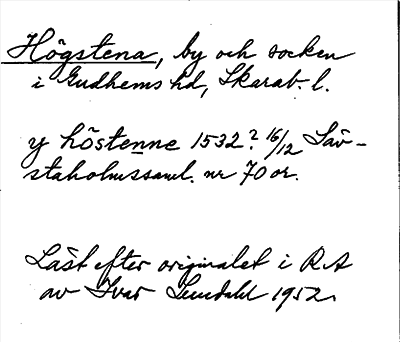 Högstena, by och socken
i Gudhems hd, Skarab. l.
y höstenne 1532? 16/12 Säv-
staholmssaml. nr 70 or.
Läst efter originalet i RA
av Ivar Lundahl 1952.